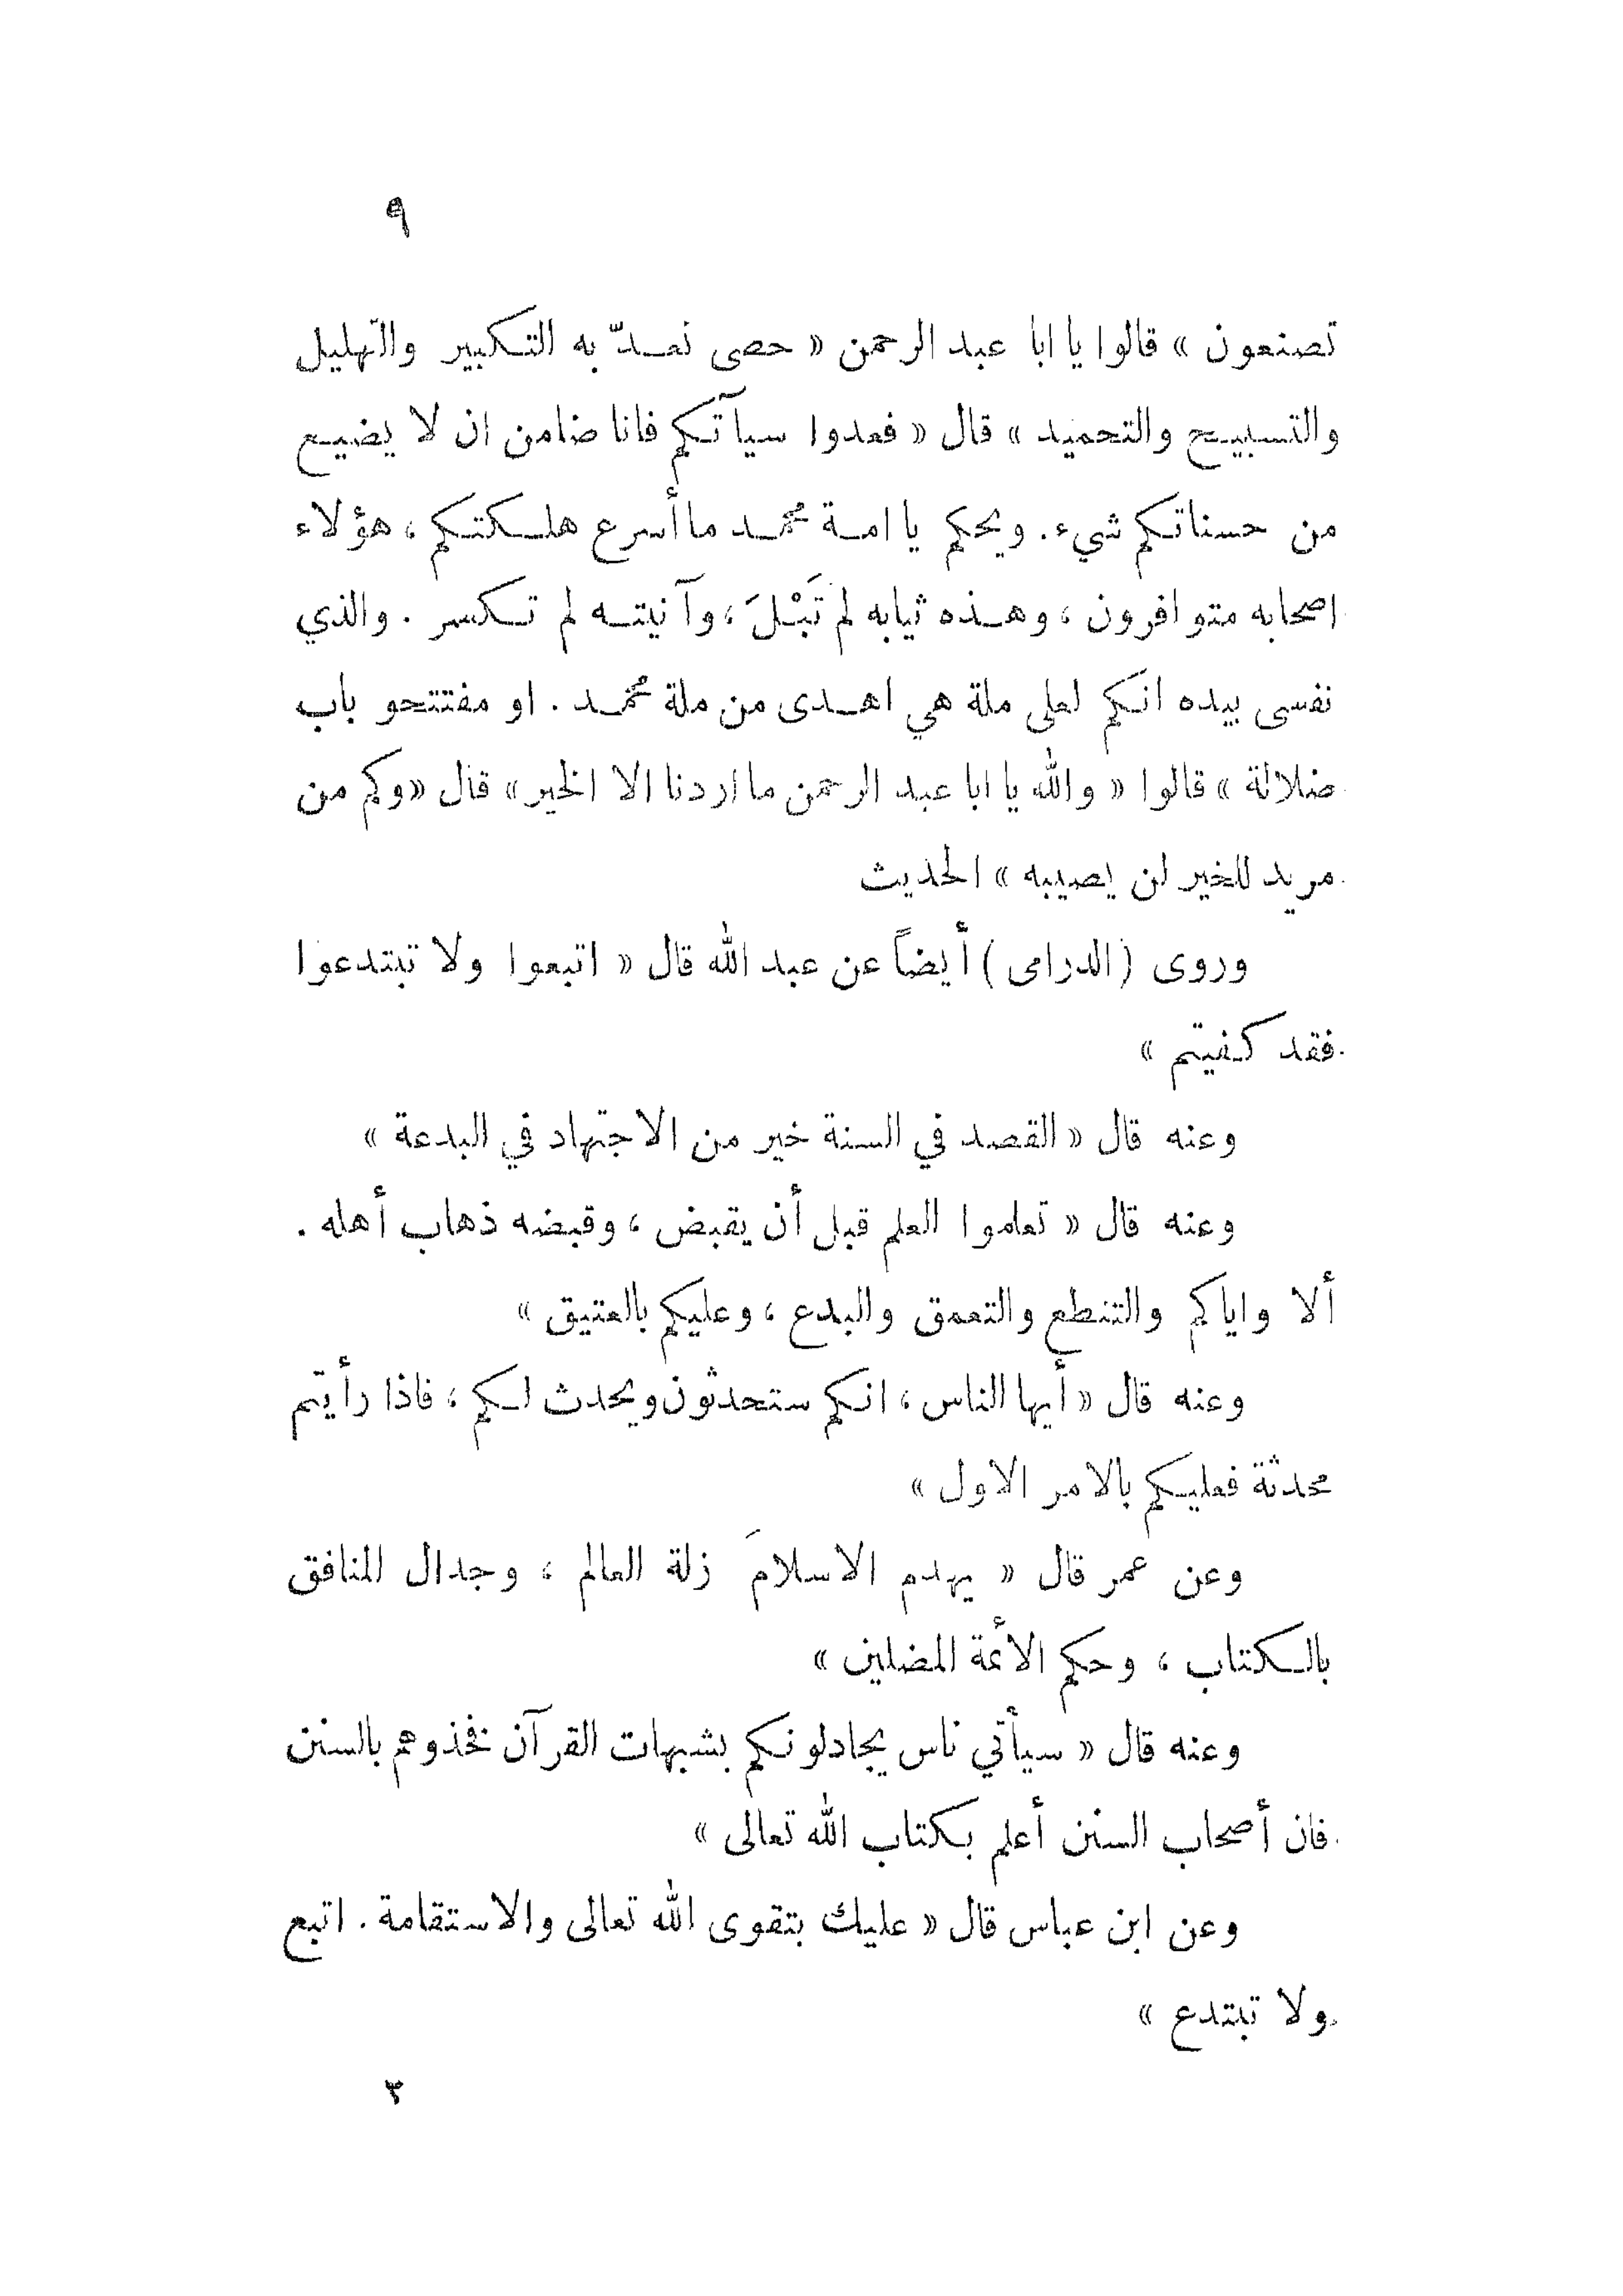 ٩
تصنعون » قالوا يا ابا عبد الرحمن « حصى نعدّ به التكبير والتهليل
والتسبيح والتحميد » قال « فعدوا سيآتكم فانا ضامن ان لا يضيع
من حسناتكم شيء . ويحكم يا امة محمد ما أسرع هلكتكم ، هؤلاء
اصحابه متوافرون ، وهذه ثيابه لم تَبْلَ ، وآنيته لم تكسر . والذي
نفسى بيده انكم لعلى ملة هي اهدى من ملة محمد . او مفتتحو باب
ضلالة » قالوا « والله يا ابا عبد الرحمن ما اردنا الا الخير » قال « وكم من
مريد للخير لن يصيبه » الحديث
وروى ( الدرامى ) أيضاً عن عبد الله قال « اتبعوا ولا تبتدعوا
فقد كفيتم »
وعنه قال « القصد في السنة خير من الاجتهاد في البدعة »
وعنه قال « تعلموا العلم قبل أن يقبض ، وقبضه ذهاب أهله .
ألا واياكم والتنطع والتعمق والبدع ، وعليكم بالعتيق »
وعنه قال « أيها الناس ، انكم ستحدثون ويحدث لكم ، فاذا رأيتم
محدثة فعليكم بالامر الاول »
وعن عمر قال « يهدم الاسلامَ زلة العالم ، وجدال المنافق
بالكتاب ، وحكم الأئمة المضلين »
وعنه قال « سيأتي ناس يجادلونكم بشبهات القرآن فخذوهم بالسنن
فان أصحاب السنن أعلم بكتاب الله تعالى »
وعن ابن عباس قال « عليك بتقوى الله تعالى والاستقامة . اتبع
ولا تبتدع »
٣